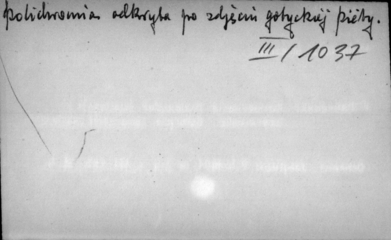 polichromia odkryta po zdjęciu gotyckiej piéty.
III/1037